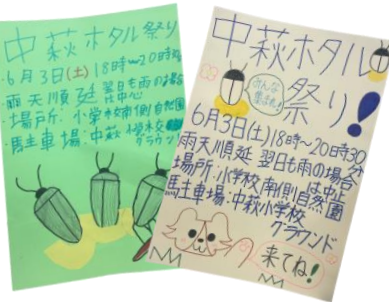 中萩ホタル祭り
6月3日(土)18時〜20時30
雨天順延 翌日も雨の場合
は中止
場所:小学校南側自然園
駐車場:中萩小学校
グラウンド
中萩ホタル
祭り!
みんな
来てね!
6月3日(土)18時〜20時30分
雨天順延 翌日も雨の場合
は中止
場所:小学校南側自然園
駐車場:中萩小学校
グラウンド
来てね!